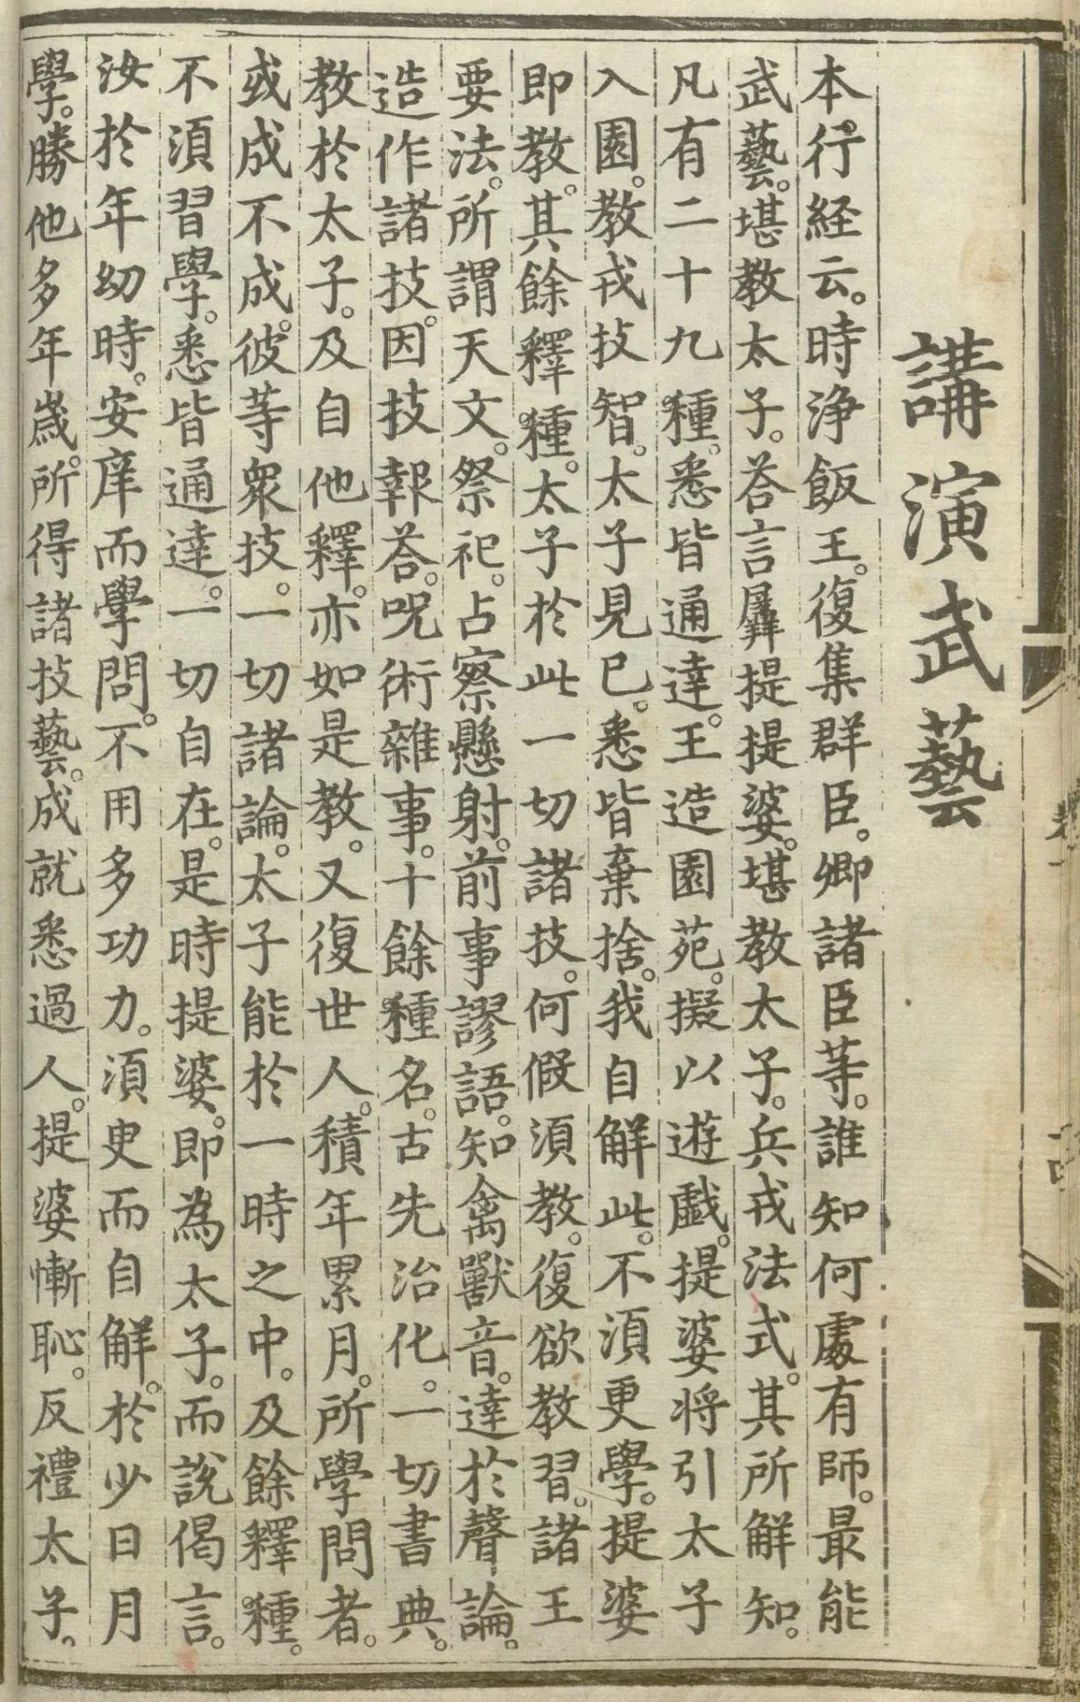 講演武藝
本行經云。時淨飯王。復集群臣。卿諸臣等。誰知何處有師。最能
武藝。堪教太子。荅言羼提提婆。堪教太子。兵戎法式。其所解知。
凡有二十九種。悉皆通達。王造園苑。擬以遊戲。提婆將引太子
入園。教戎技智。太子見已。悉皆棄捨。我自解此。不須更學。提婆
即教。其餘釋種。太子於此一切諸技。何假須教。復欲教習。諸王
要法。所謂天文。祭祀。占察懸射。前事謬語。知禽獸音。達於聲論。
造作諸技。因技報荅。呪術雜事。十餘種名。古先治化。一切書典。
教於太子。及自他釋。亦如是教。又復世人。積年累月。所學問者。
或成不成。彼等衆技。一切諸論。太子能於一時之中。及餘釋種。
不須習學。悉皆通達。一切自在。是時提婆。即為太子。而說偈言。
汝於年幼時。安庠而學問。不用多功力。須臾而自解。於少日月
學。勝他多年歲。所得諸技藝。成就悉過人。提婆慚恥。反禮太子。